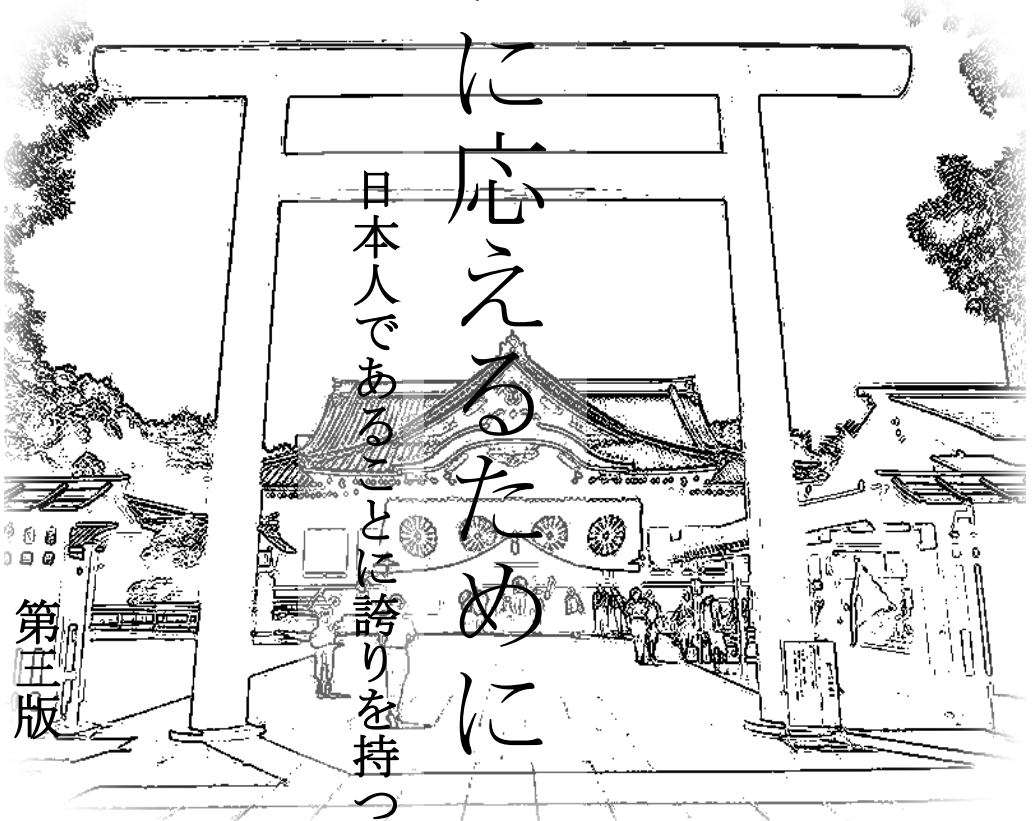 に応えるために
日本人であることに誇りを持つ
第三版